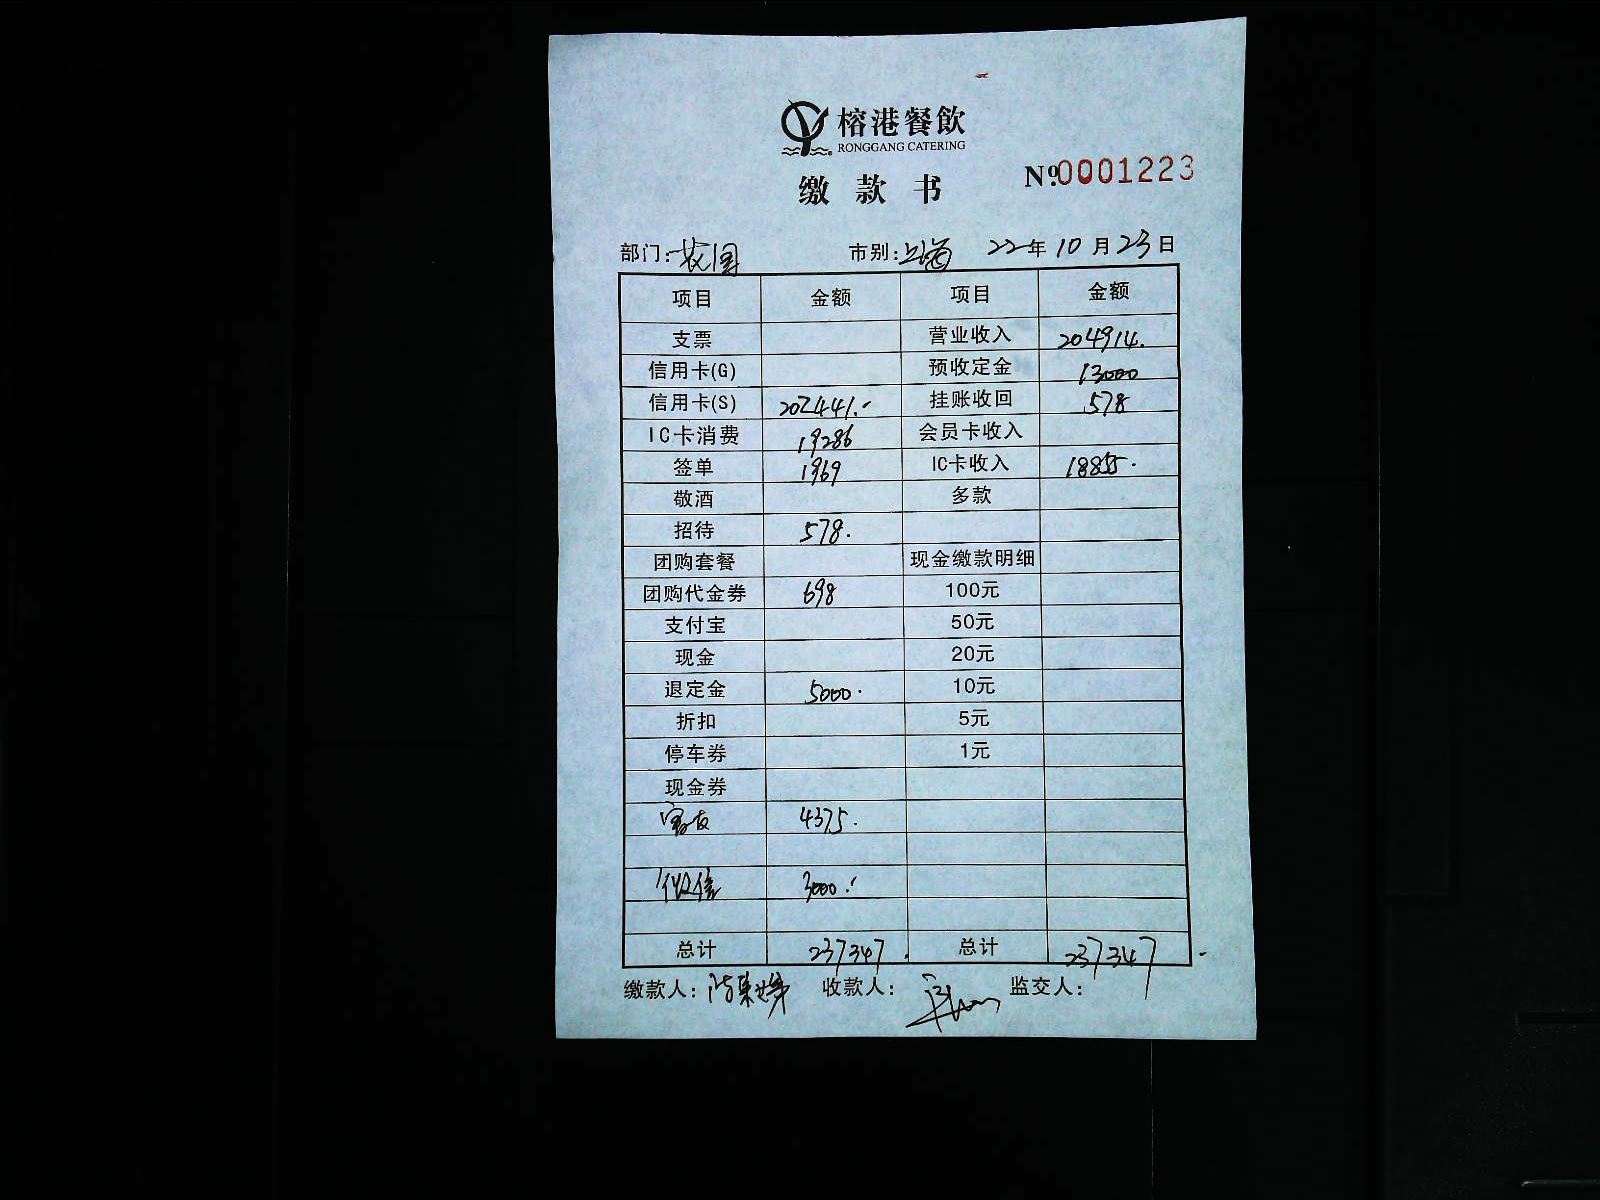 榕港餐飲
RONGGANG CATERING
缴款书 №0001223
部门:花园 市别:上海 22年10月23日
项目 金额 项目 金额
支票 营业收入 204914.
信用卡(G) 预收定金 13000
信用卡(S) 202441.- 挂账收回 578
IC卡消费 19286 会员卡收入
签单 1969 IC卡收入 18855.
敬酒 多款
招待 578.
团购套餐 现金缴款明细
团购代金券 698 100元
支付宝 50元
现金 20元
退定金 5000. 10元
折扣 5元
停车券 1元
现金券
4375.
微信 3000.
总计 237347. 总计 237347
缴款人: 收款人: 监交人: